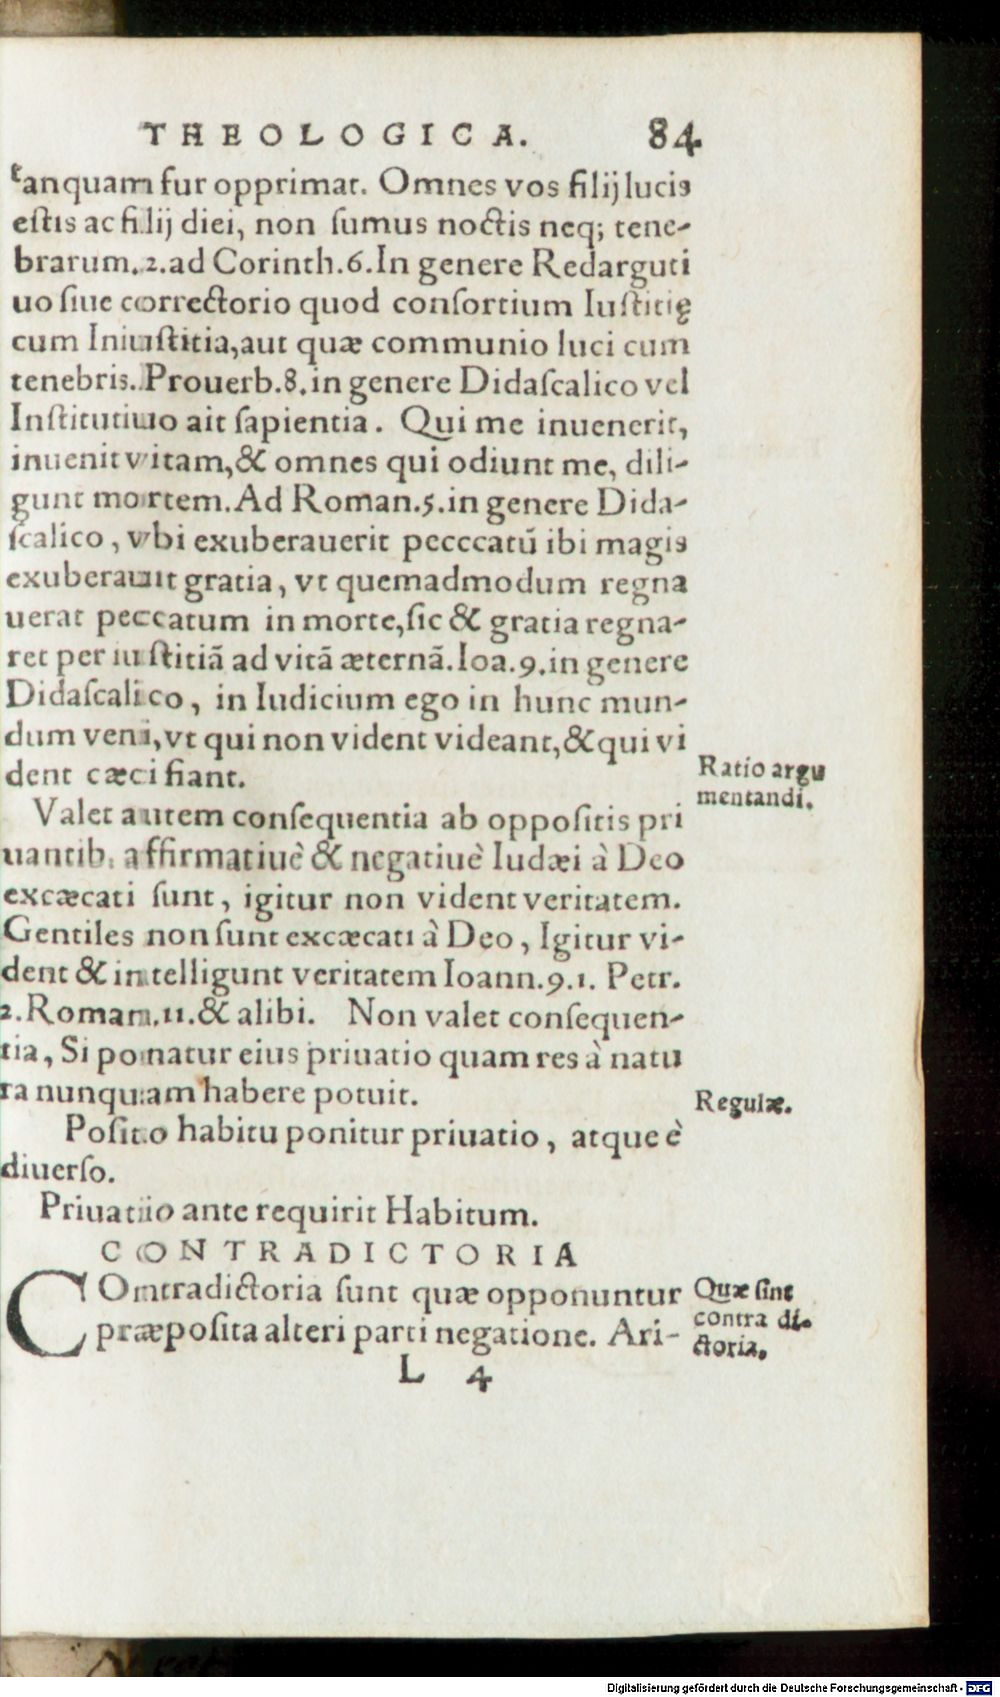 THEOLOGICA. 84
tanquam fur opprimat. Omnes vos filij lucis
estis ac filij diei, non sumus noctis neq; tene-
brarum. 2. ad Corinth. 6. In genere Redarguti
uo siue correctorio quod consortium Iustitię
cum Iniustitia, aut quæ communio luci cum
tenebris. Prouerb. 8. in genere Didascalico vel
Institutiuo ait sapientia. Qui me inuenerit,
inuenit vitam, & omnes qui odiunt me, dili-
gunt mortem. Ad Roman. 5. in genere Dida-
scalico, vbi exuberauerit pecccatū ibi magis
exuberauit gratia, vt quemadmodum regna
uerat peccatum in morte, sic & gratia regna-
ret per iustitiā ad vitā æternā. Ioa. 9. in genere
Didascalico, in Iudicium ego in hunc mun-
dum veni, vt qui non vident videant, & qui vi
dent cæci fiant.
Ratio argu
mentandi.
Valet autem consequentia ab oppositis pri
uantib. affirmatiuè & negatiuè Iudæi à Deo
excæcati sunt, igitur non vident veritatem.
Gentiles non sunt excæcati à Deo, Igitur vi-
dent & intelligunt veritatem Ioann. 9. 1. Petr.
2. Roman. 11. & alibi. Non valet consequen-
tia, Si ponatur eius priuatio quam res à natu
ra nunquam habere potuit.
Regulæ.
Posito habitu ponitur priuatio, atque è
diuerso.
Priuatio ante requirit Habitum.
CONTRADICTORIA
COntradictoria sunt quæ opponuntur
præposita alteri parti negatione. Ari-
Quæ sint
contra di-
ctoria.
L 4
Digitalisierung gefördert durch die Deutsche Forschungsgemeinschaft - DFG